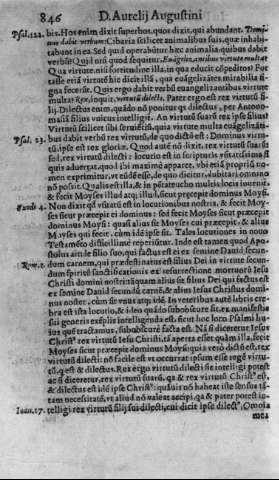 846 D. Aurelij Augustini
Psal. 122. bis. Hos enim dixit superbos, quos dixit, qui abundant. Domi-
nus dabit verbum: Cibaria scilicet animalibus suis, quæ inhabi-
tabunt in ea. Sed quo operabitur hæc animalia, quibus dabit
verbum? Quid nisi quod sequitur, Euāgelizantibus virtute multa?
Qua virtute, nisi fortitudine illa, in qua educit cōpeditos? For-
te etiā virtutē hic dicit illā, qua euāgelizātes mirabilia fi-
gna fecerūt. Quis ergo dabit verbū euangelizantibus virtute
multa? Rex, inquit, virtutū dilecti. Pater ergo est rex virtutū fi-
lij. Dilectus enim, quādo nō ponitur q̄s dilectus, per Antono-
masiā filius vnicus intelligit. An virtutū suarū rex ipse filius?
Virtutū scilicet sibi seruientiū, quia virtute multa euāgelizan-
Psal. 23. tibus dabit verbū rex virtutū, de quo dictū est: Dominus virtu-
tū, ipse est rex gloriæ. Quod autē nō dixit, rex virtutū suarū
sed, rex virtutū dilecti: locutio est in scripturis vsitatissima si
quis aduertat,
nomen exprimitur, vt eūdē esse, de quo dicitur, dubitari omnino
nō possit. Qualis est illa, & in pētateucho multis locis inuenit,
& fecit Moyses illud aut illud, sicut præcepit dominus Moysi.
Exodi 4. Non dixit qd̓ vsitatū est in locutionibus nostris, & fecit Moy-
ses sicut præcepit ei dominus: sed fecit Moyses sicut præcepit
dominus Moysi: quasi alius sit Moyses cui præcepit, & alius
Moyses qui fecit, cum idē ipse sit. Tales locutiones in nouo
Testamēto difficillime reperiuntur. Inde est tamen quod Apo-
stolus ait de filio suo, qui factus est ei ex semine Dauid secun-
Rom. 1. dum carnem, qui prædestinatus est filius Dei in virtute secun-
dum spiritū sanctificationis ex resurrectione mortuorū Iesu
Christi domini nostri: tanquam alius sit filius Dei qui factus est
ex semine Dauid secundū carnē, & alius Iesus Christus domi-
nus noster, cùm sit vnus atq; idē. In veteribus autē libris cre-
bra est ista locutio, & ideo quādo subobscure sit, ex manifestis
sui generis explis intelligenda est, sicut hoc loco Psalmi hu-
ius quē tractamus, subobscure facta est. Nā si diceretur Iesus
Christ9 rex virtutū Iesu Christi, tā aperta esset, quàm illa, fecit
Moyses sicut præcepit dominus Moysi: quia verò dictū est, rex
virtutū dilecti: nō facile est vt occurrat ipsum esse regē virtu-
tū, q̄ est & dilectus. Rex ergo virtutū dilecti sic intelligi potest
ac si diceretur, rex virtutū suarū, qa & rex virtutū Christ9 est,
& dilectus est idē ipse Christ9: quāuis nō habeat iste sensus tā-
tam necessitatem, vt aliud nō valeat accipi, qa & pater potest in-
Ioan. 17. telligi rex virtutū filij sui dilecti, cui dicit ipse dilect9, Omnia
mea